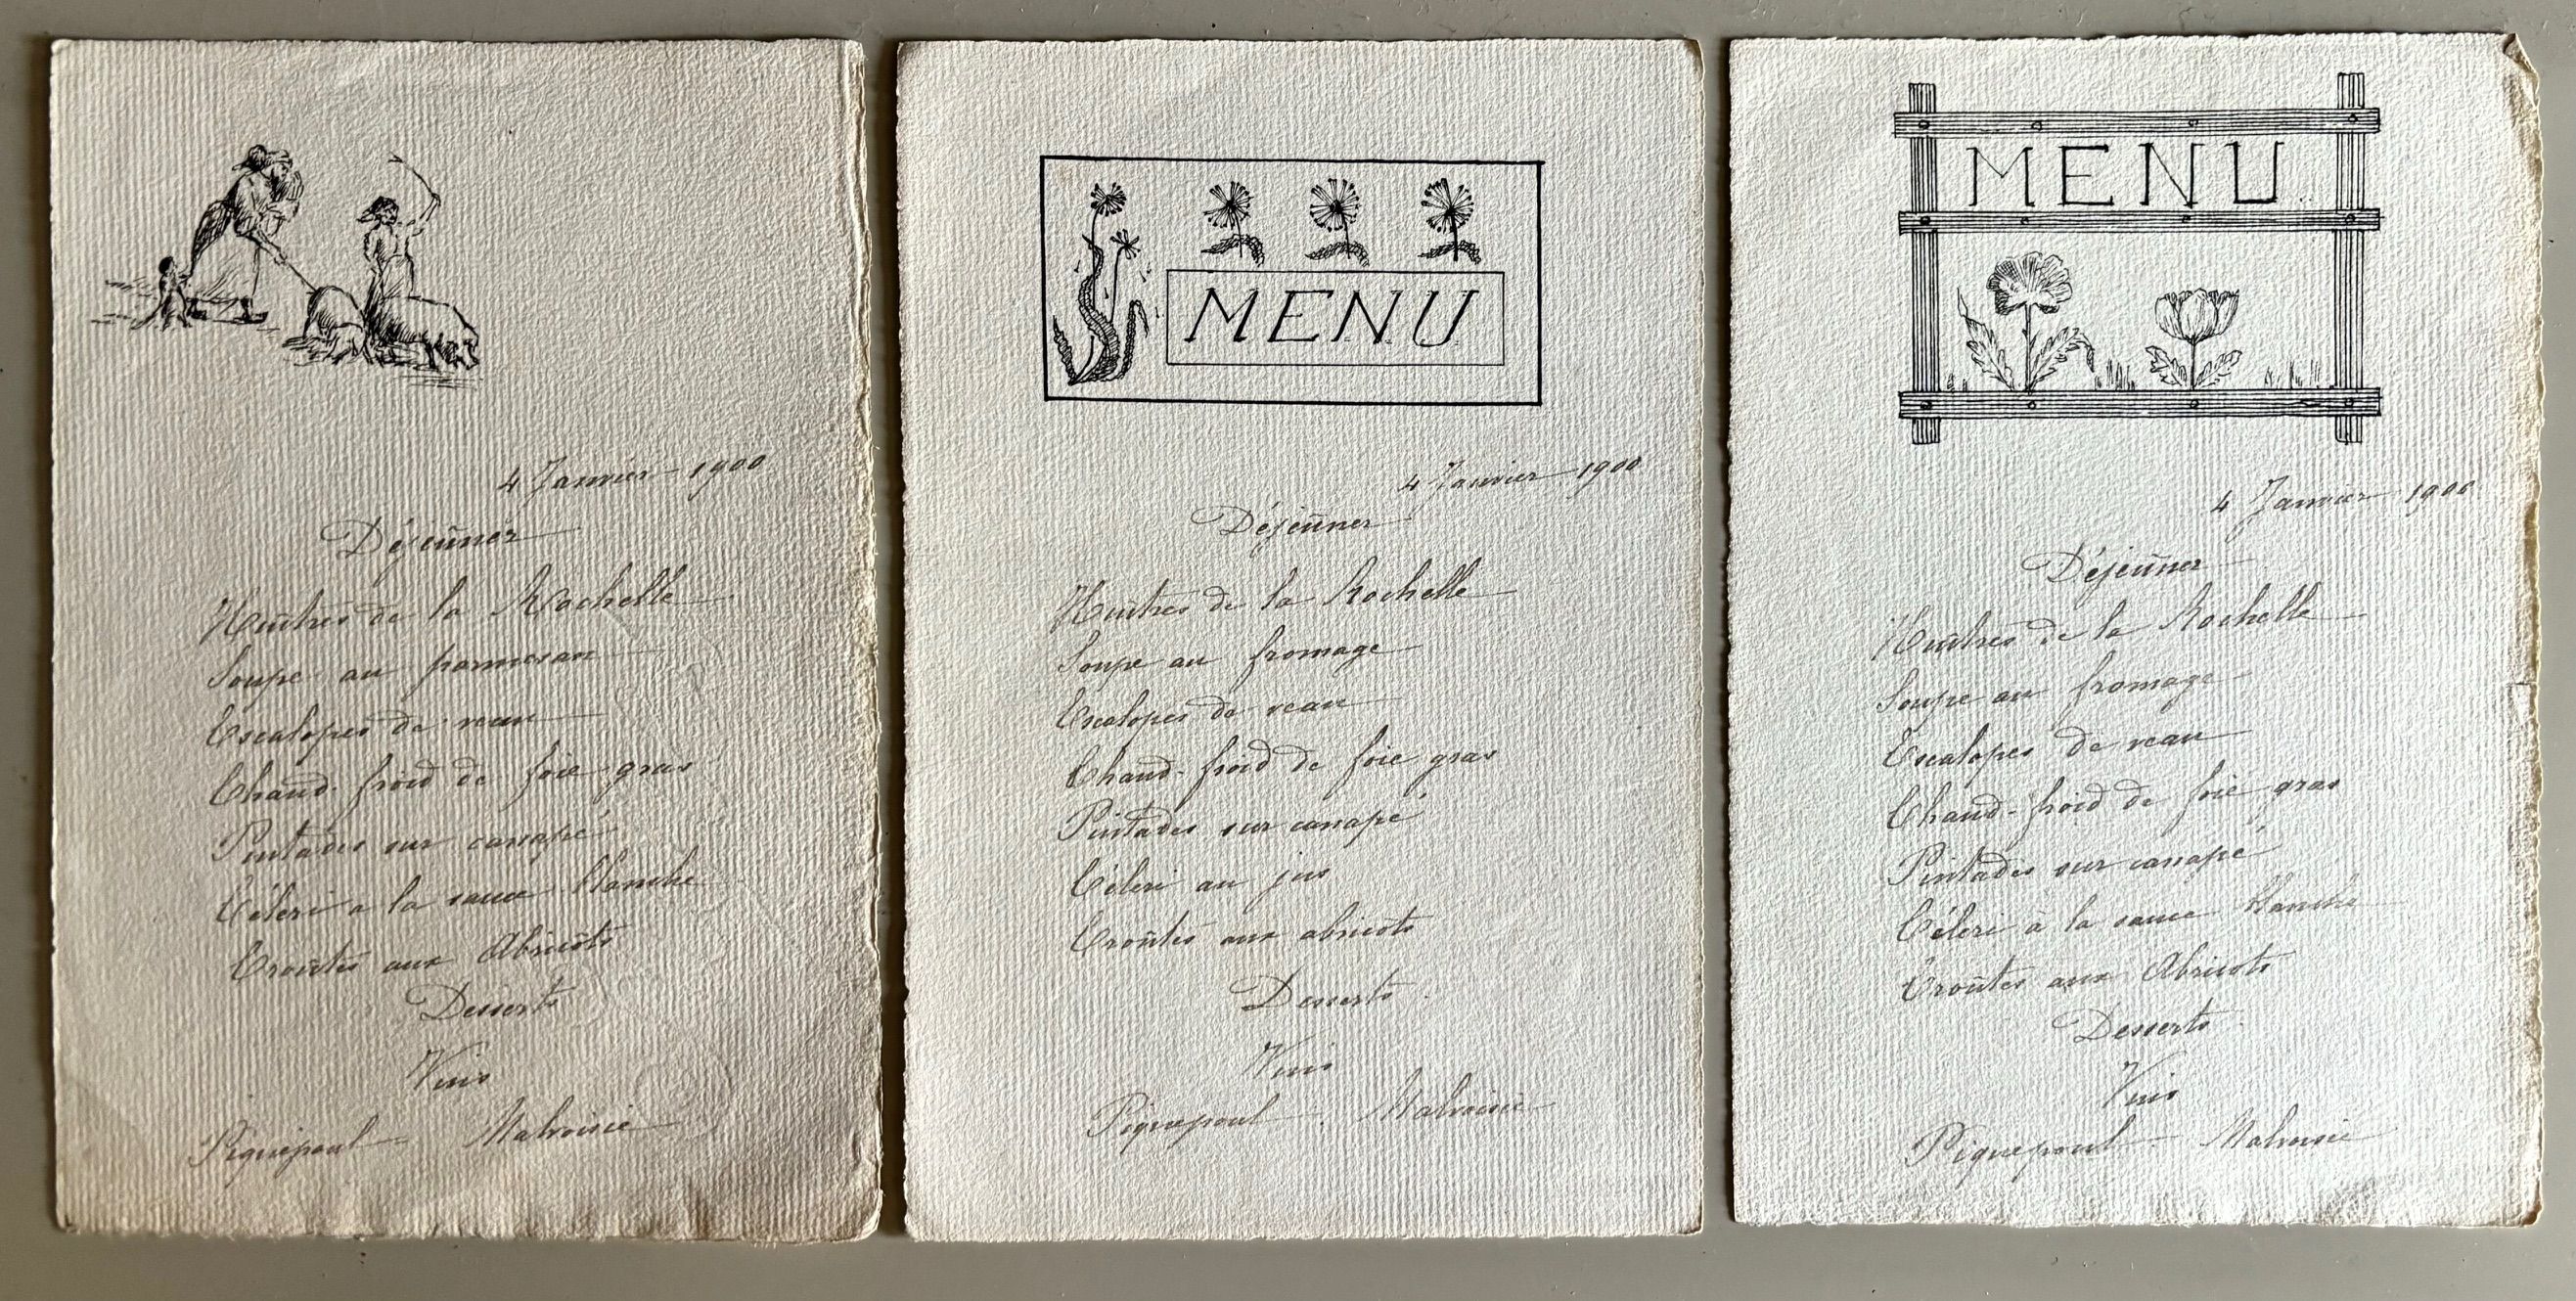 4 Janvier 1900
Déjeûner
Huîtres de la Rochelle
Soupe au parmesan
Escalopes de veau
Chaud-froid de foie gras
Pintades sur canapé
Céleri a la sauce blanche
Croûtes aux Abricots
Desserts
Vins
Piquepoul - Malvoisie
MENU
4 Janvier 1900
Déjeûner
Huîtres de la Rochelle
Soupe au fromage
Escalopes de veau
Chaud-froid de foie gras
Pintades sur canapé
Céleri au jus
Croûtes aux abricots
Desserts
Vins
Piquepoul - Malvoisie
MENU
4 Janvier 1900
Déjeûner
Huîtres de la Rochelle
Soupe au fromage
Escalopes de veau
Chaud-froid de foie gras
Pintades sur canapé
Céleri à la sauce blanche
Croûtes aux Abricots
Desserts
Vins
Piquepoul - Malvoisie